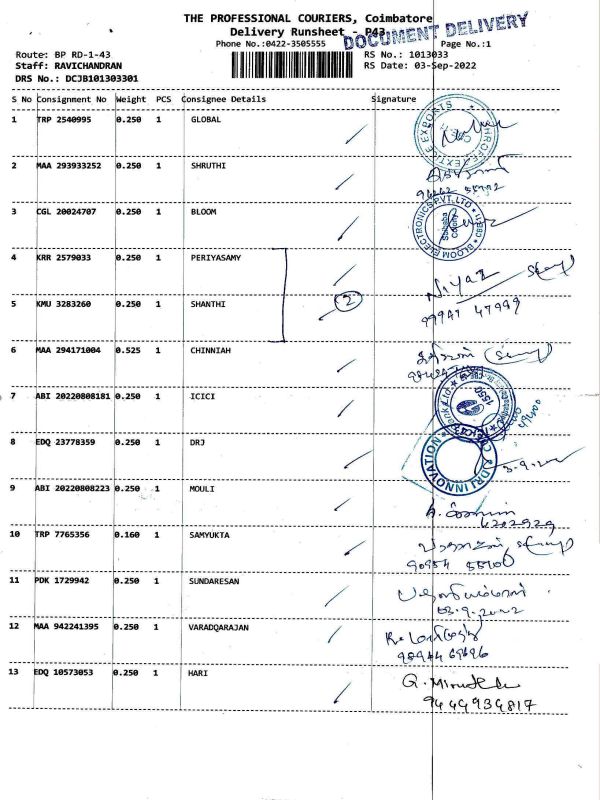 THE PROFESSIONAL COURIERS, Coimbatore
Delivery Runsheet - P43
DOCUMENT DELIVERY
Phone No.:0422-3505555 Page No.:1
Route: BP RD-1-43 RS No.: 1013033
Staff: RAVICHANDRAN RS Date: 03-Sep-2022
DRS No.: DCJB101303301
S No Consignment No Weight PCS Consignee Details Signature
1 TRP 2540995 0.250 1 GLOBAL
2 MAA 293933252 0.250 1 SHRUTHI
3 CGL 20024707 0.250 1 BLOOM
BLOOM ELECTRONICS PVT. LTD
Saibaba Colony
4 KRR 2579033 0.250 1 PERIYASAMY
Niyaz
5 KMU 3283260 0.250 1 SHANTHI
2
99941 47999
6 MAA 294171004 0.525 1 CHINNIAH
7 ABI 20220808181 0.250 1 ICICI
8 EDQ 23778359 0.250 1 DRJ
DRJ INNOVATION
9 ABI 20220808223 0.250 1 MOULI
10 TRP 7765356 0.160 1 SAMYUKTA
90954 55100
11 PDK 1729942 0.250 1 SUNDARESAN
03.9.2022
12 MAA 942241395 0.250 1 VARADQARAJAN
98944 69696
13 EDQ 10573053 0.250 1 HARI
9444934817